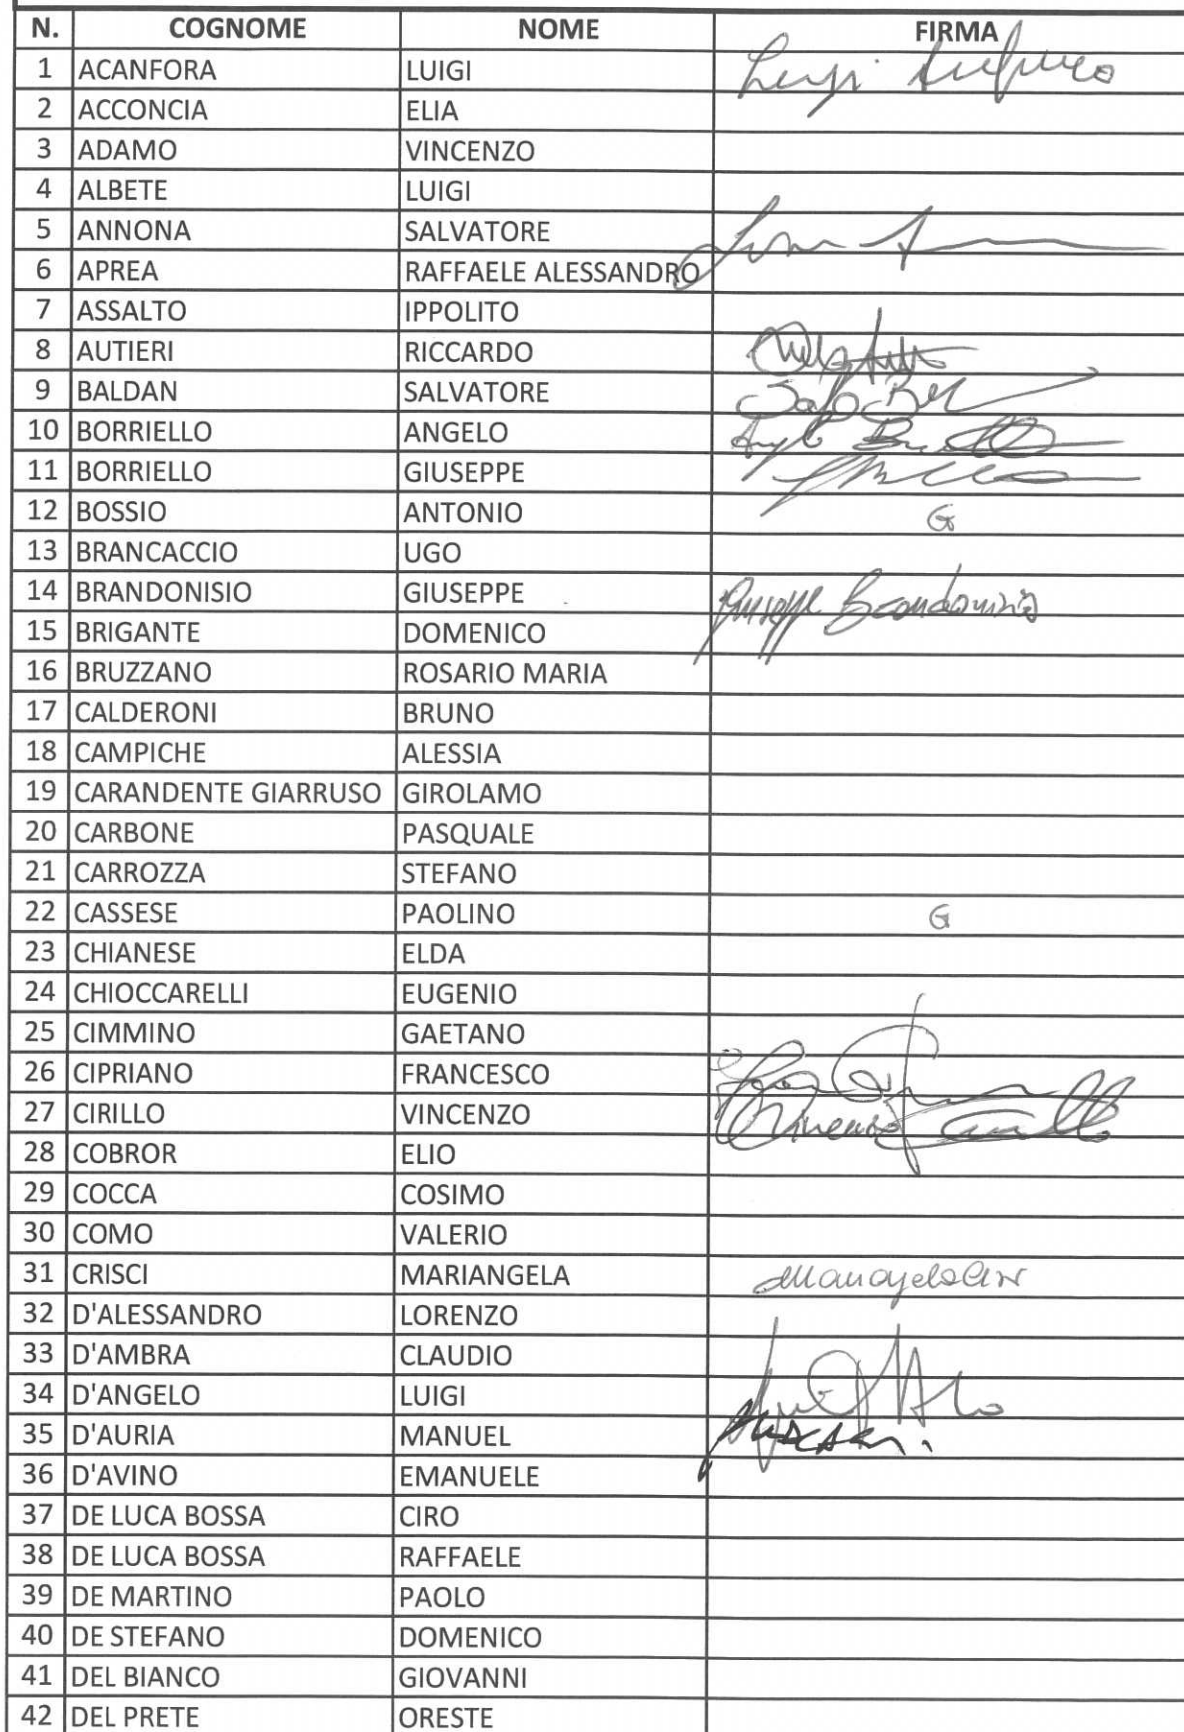 N. COGNOME NOME FIRMA
1 ACANFORA LUIGI Luigi
2 ACCONCIA ELIA
3 ADAMO VINCENZO
4 ALBETE LUIGI
5 ANNONA SALVATORE
6 APREA RAFFAELE ALESSANDRO
7 ASSALTO IPPOLITO
8 AUTIERI RICCARDO
9 BALDAN SALVATORE
10 BORRIELLO ANGELO
11 BORRIELLO GIUSEPPE
12 BOSSIO ANTONIO G
13 BRANCACCIO UGO
14 BRANDONISIO GIUSEPPE Giuseppe Brandonisio
15 BRIGANTE DOMENICO
16 BRUZZANO ROSARIO MARIA
17 CALDERONI BRUNO
18 CAMPICHE ALESSIA
19 CARANDENTE GIARRUSO GIROLAMO
20 CARBONE PASQUALE
21 CARROZZA STEFANO
22 CASSESE PAOLINO G
23 CHIANESE ELDA
24 CHIOCCARELLI EUGENIO
25 CIMMINO GAETANO
26 CIPRIANO FRANCESCO
27 CIRILLO VINCENZO Vincenzo Cirillo
28 COBROR ELIO
29 COCCA COSIMO
30 COMO VALERIO
31 CRISCI MARIANGELA
32 D'ALESSANDRO LORENZO
33 D'AMBRA CLAUDIO
34 D'ANGELO LUIGI
35 D'AURIA MANUEL
36 D'AVINO EMANUELE
37 DE LUCA BOSSA CIRO
38 DE LUCA BOSSA RAFFAELE
39 DE MARTINO PAOLO
40 DE STEFANO DOMENICO
41 DEL BIANCO GIOVANNI
42 DEL PRETE ORESTE